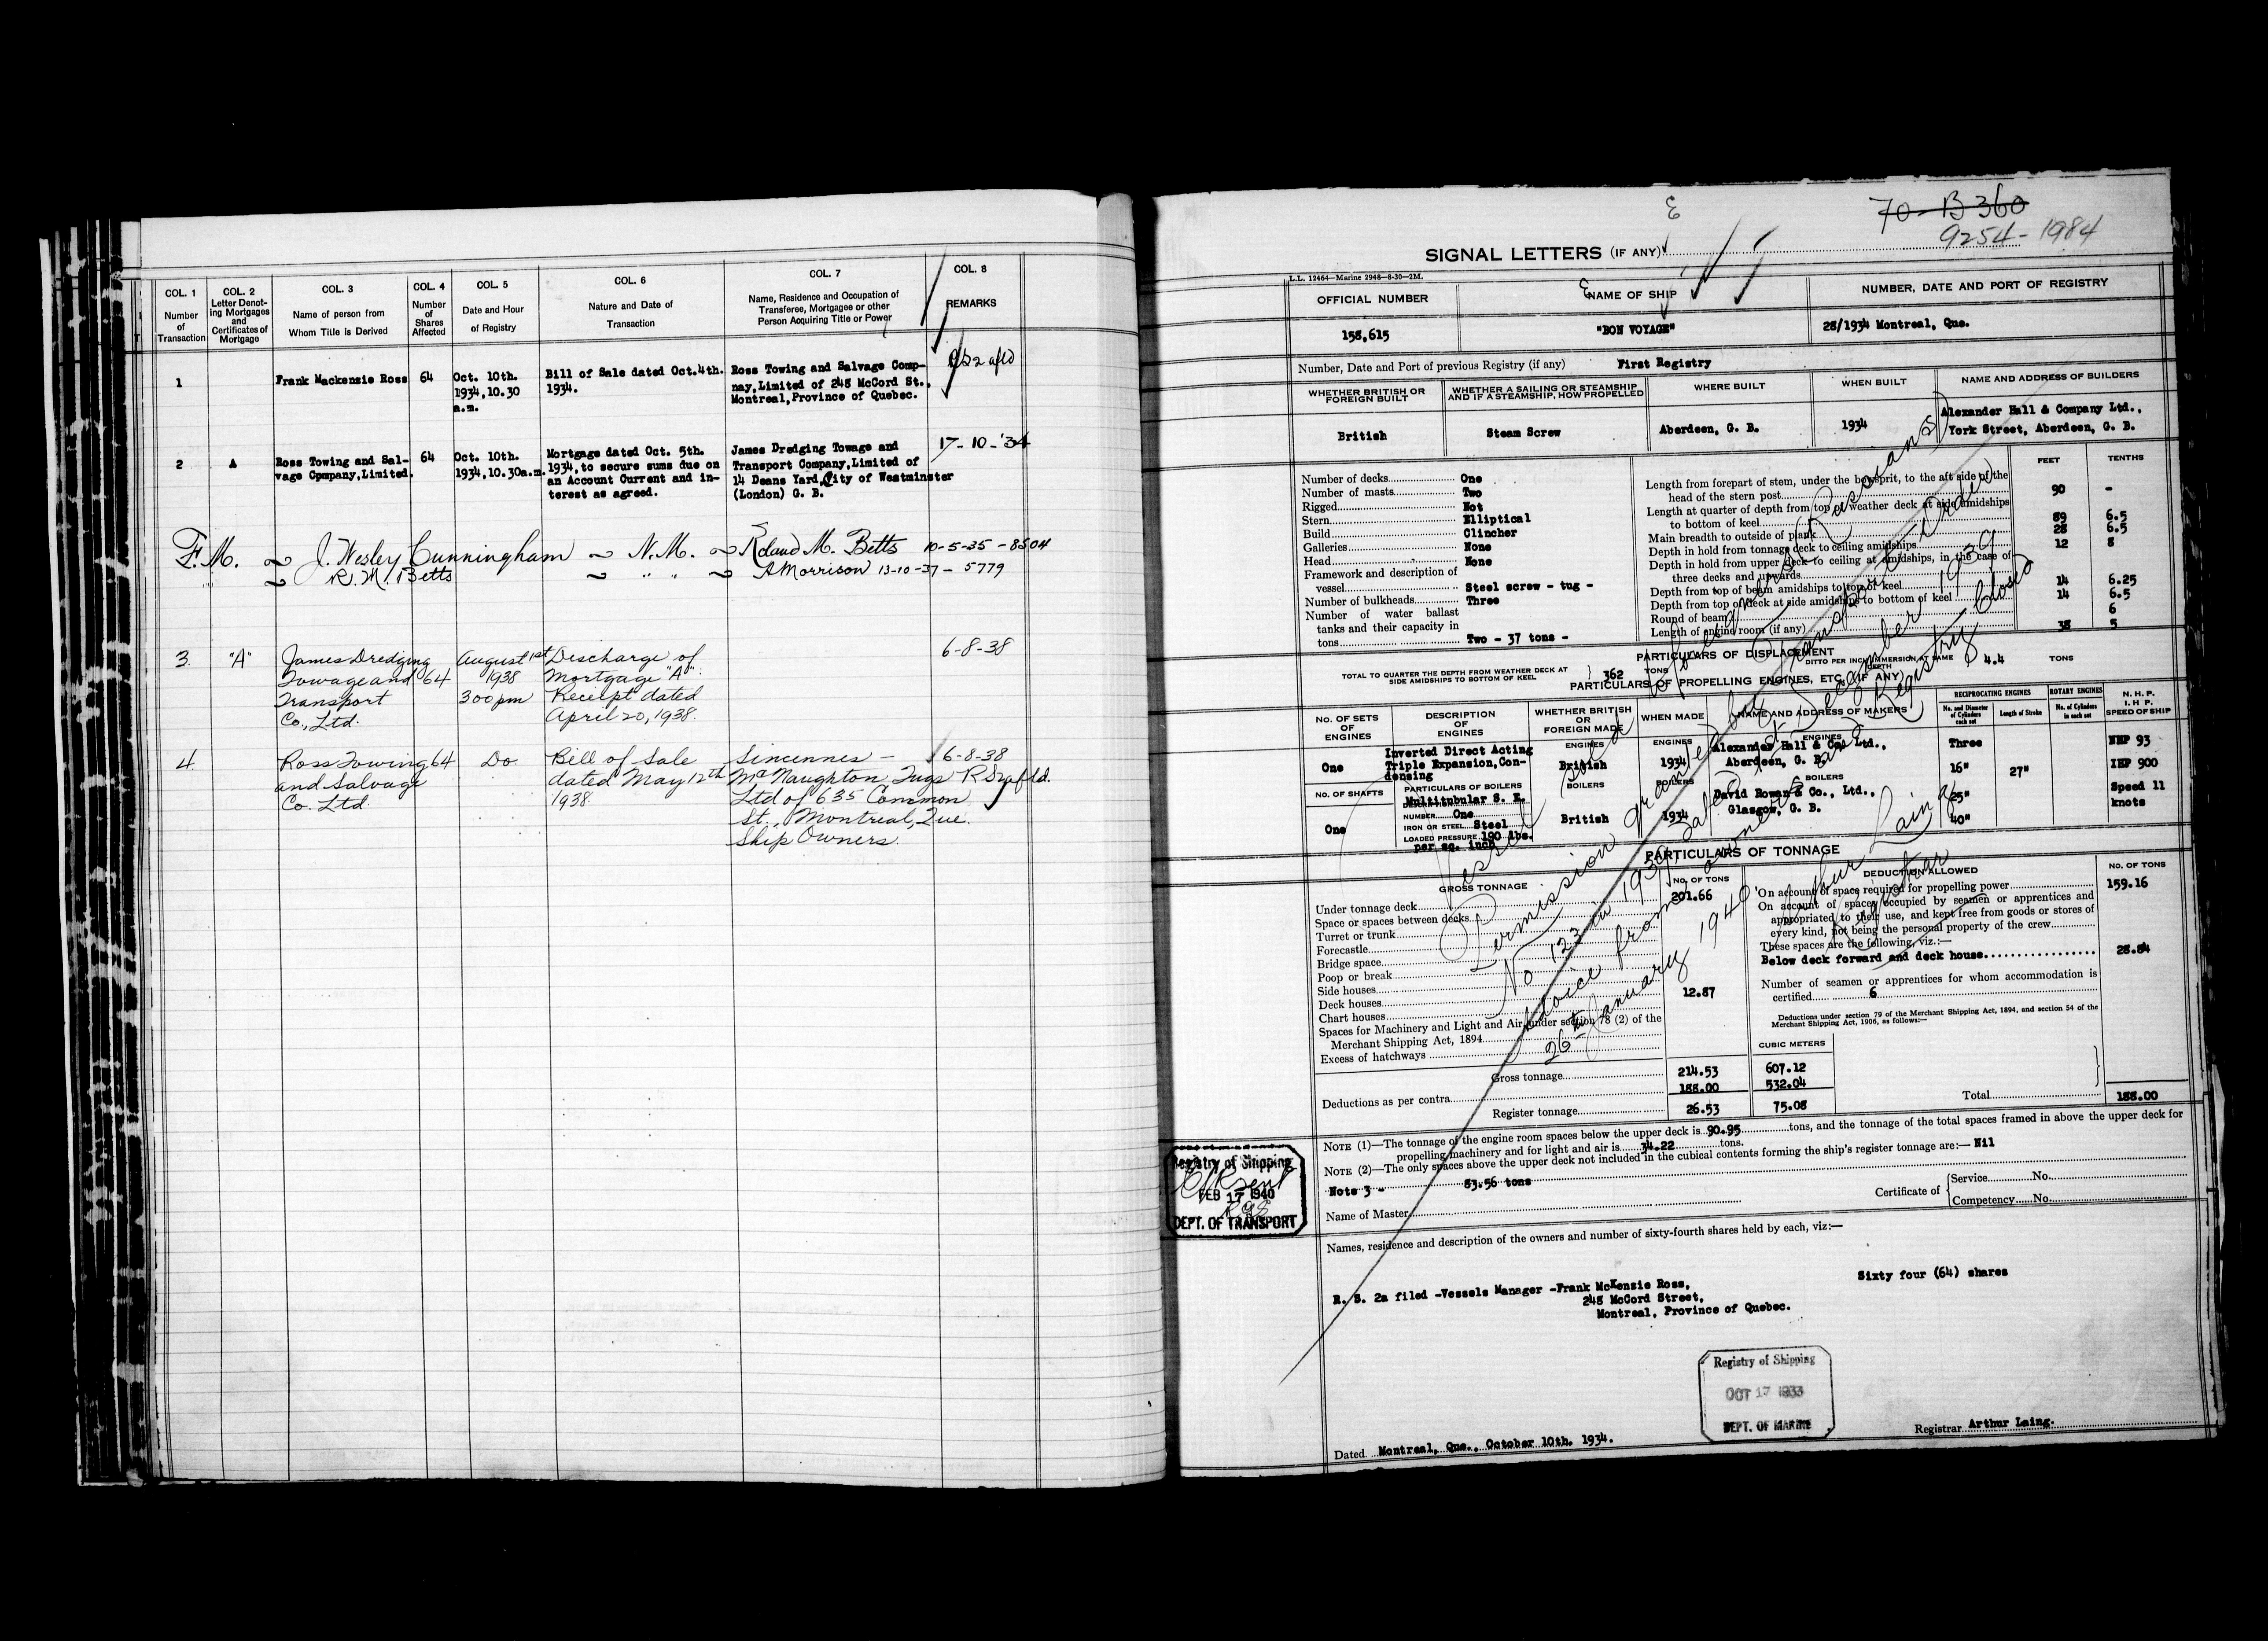 COL. 1
Number
of
Transaction
COL. 2
Letter Denot-
ing Mortgages
and
Certificates of
Mortgage
COL. 3
Name of person from
Whom Title is Derived
COL. 4
Number
of
Shares
Affected
COL. 5
Date and Hour
of Registry
COL. 6
Nature and Date of
Transaction
COL. 7
Name, Residence and Occupation of
Transferee, Mortgagee or other
Person Acquiring Title or Power
COL. 8
REMARKS
1
Frank Mackenzie Ross
64
Oct. 10th.
1934, 10.30
a.m.
Bill of Sale dated Oct. 4th.
1934.
Ross Towing and Salvage Comp-
nay, Limited of 248 McCord St.,
Montreal, Province of Quebec.
2
A
Ross Towing and Sal-
vage Company, Limited.
64
Oct. 10th.
1934, 10.30a.m.
Mortgage dated Oct. 5th.
1934, to secure sums due on
an Account Current and in-
terest as agreed.
James Dredging Towage and
Transport Company, Limited of
14 Deans Yard, City of Westminster
(London) G. B.
17-10-'34
F. M. J. Wesley Cunningham N. M. Roland M. Betts 10-5-35 - 8504
R. M. Betts " " A Morrison 13-10-37 - 5779
3.
"A"
James Dredging
Towage and
Transport
Co., Ltd.
64
August 1st
1938
3 00 pm
Discharge of
Mortgage "A".
Receipt dated
April 20, 1938.
6-8-38
4.
Ross Towing
and Salvage
Co. Ltd.
64
Do
Bill of Sale
dated May 12th
1938.
Sincennes -
McNaughton Tugs
Ltd of 635 Common
St., Montreal, Que.
Ship Owners.
16-8-38
70-B360
9254-1984
SIGNAL LETTERS (IF ANY)
L.L. 12464—Marine 2948—8-30—2M.
OFFICIAL NUMBER
NAME OF SHIP
NUMBER, DATE AND PORT OF REGISTRY
158,615
"BON VOYAGE"
28/1934 Montreal, Que.
Number, Date and Port of previous Registry (if any) First Registry
WHETHER BRITISH OR
FOREIGN BUILT
WHETHER A SAILING OR STEAMSHIP
AND IF A STEAMSHIP, HOW PROPELLED
WHERE BUILT
WHEN BUILT
NAME AND ADDRESS OF BUILDERS
British
Steam Screw
Aberdeen, G. B.
1934
Alexander Hall & Company Ltd.,
York Street, Aberdeen, G. B.
Number of decks One
Number of masts Two
Rigged Not
Stern Elliptical
Build Clincher
Galleries None
Head None
Framework and description of
vessel Steel screw - tug -
Number of bulkheads Three
Number of water ballast
tanks and their capacity in
tons Two - 37 tons -
FEET
TENTHS
Length from forepart of stem, under the bowsprit, to the aft side of the
head of the stern post 90 -
Length at quarter of depth from top of weather deck at side amidships
to bottom of keel 89 6.5
Main breadth to outside of plank 28 6.5
Depth in hold from tonnage deck to ceiling amidships 12 8
Depth in hold from upper deck to ceiling at amidships, in the case of
three decks and upwards
Depth from top of beam amidships to top of keel 14 6.25
Depth from top of deck at side amidships to bottom of keel 14 6.5
Round of beam 6
Length of engine room (if any) 38 5
PARTICULARS OF DISPLACEMENT
TOTAL TO QUARTER THE DEPTH FROM WEATHER DECK AT
SIDE AMIDSHIPS TO BOTTOM OF KEEL
362 TONS
DITTO PER INCH IMMERSION AT SAME
DEPTH
4.4 TONS
PARTICULARS OF PROPELLING ENGINES, ETC. (IF ANY)
NO. OF SETS
OF
ENGINES
DESCRIPTION
OF
ENGINES
WHETHER BRITISH
OR
FOREIGN MADE
WHEN MADE
NAME AND ADDRESS OF MAKERS
RECIPROCATING ENGINES
No. and Diameter
of Cylinders
each set
Length of Stroke
ROTARY ENGINES
No. of Cylinders
in each set
N. H. P.
I. H. P.
SPEED OF SHIP
One
Inverted Direct Acting
Triple Expansion, Con-
densing
ENGINES
British
ENGINES
1934
ENGINES
Alexander Hall & Co. Ltd.,
Aberdeen, G. B.
Three
16"
25"
40"
27"
NHP 93
IHP 900
Speed 11
knots
NO. OF SHAFTS
One
PARTICULARS OF BOILERS
Multitubular S. E.
NUMBER One
IRON OR STEEL Steel
LOADED PRESSURE 190 lbs.
per sq. inch
BOILERS
British
BOILERS
1934
BOILERS
David Rowan & Co., Ltd.,
Glasgow, G. B.
PARTICULARS OF TONNAGE
GROSS TONNAGE
NO. OF TONS
Under tonnage deck 201.66
Space or spaces between decks
Turret or trunk
Forecastle
Bridge space
Poop or break
Side houses
Deck houses 12.87
Chart houses
Spaces for Machinery and Light and Air, under section 78 (2) of the
Merchant Shipping Act, 1894
Excess of hatchways
DEDUCTION ALLOWED
NO. OF TONS
On account of space required for propelling power 159.16
On account of spaces occupied by seamen or apprentices and
appropriated to their use, and kept free from goods or stores of
every kind, not being the personal property of the crew
These spaces are the following, viz.:—
Below deck forward and deck house 28.84
Number of seamen or apprentices for whom accommodation is
certified 6
Deductions under section 79 of the Merchant Shipping Act, 1894, and section 54 of the
Merchant Shipping Act, 1906, as follows:—
CUBIC METERS
Gross tonnage 214.53 607.12
Deductions as per contra 188.00 532.04
Register tonnage 26.53 75.08
Total 188.00
Vessel sold to foreigners (Russians)
Permission granted by Transport Order
No 122 in 1939 dated December 1939
Advice from owners and Registry Closed
26th January 1940
Arthur Laing
Registrar
NOTE (1)—The tonnage of the engine room spaces below the upper deck is 90.95 tons, and the tonnage of the total spaces framed in above the upper deck for
propelling machinery and for light and air is 34.22 tons.
NOTE (2)—The only spaces above the upper deck not included in the cubical contents forming the ship's register tonnage are:— Nil
Note 3 - 83.56 tons
Name of Master
Certificate of
Service No.
Competency No.
Registry of Shipping
FEB 17 1940
DEPT. OF TRANSPORT
Names, residence and description of the owners and number of sixty-fourth shares held by each, viz:—
Sixty four (64) shares
R. S. 2a filed -Vessels Manager -Frank McKenzie Ross,
248 McCord Street,
Montreal, Province of Quebec.
Registry of Shipping
OCT 17 1933
DEPT. OF MARINE
Dated Montreal, Que., October 10th. 1934.
Registrar Arthur Laing.